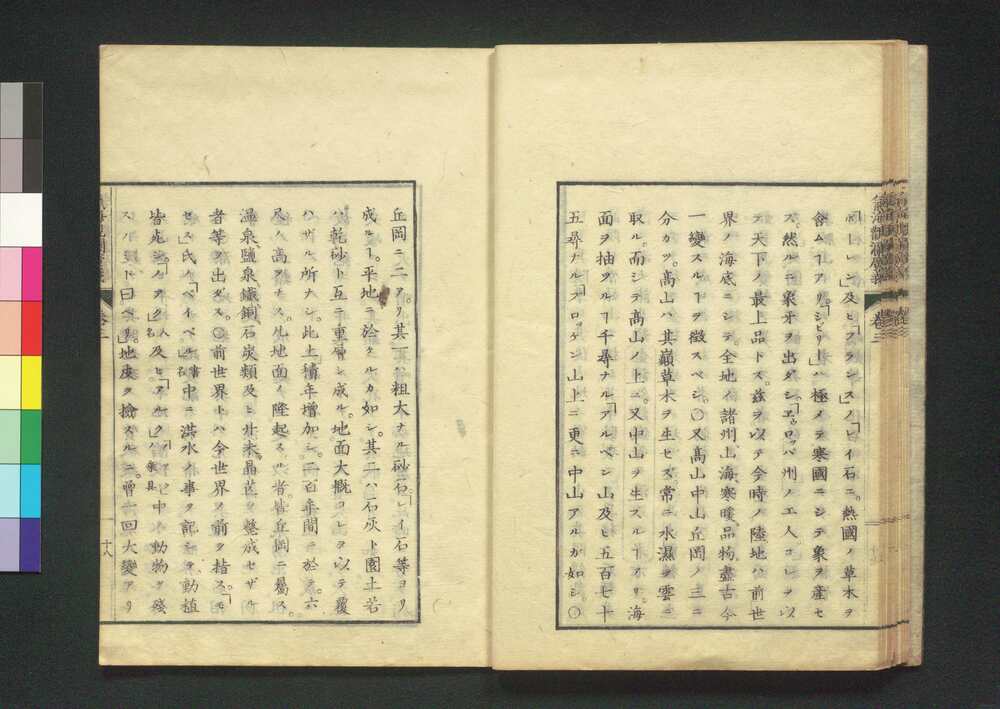 「ーレン」及ヒ「フランシスノ」ヒイ石ニ。熱國ノ草木ヲ
含ムヿアリ。「シビリー」ハ極メテ寒國ニシテ象ヲ産セ
ズ。然ルニ象牙ヲ出ダシ、「エウロッパ」州ノ工人コレヲ以
テ天下ノ最上品トス。茲ヲ以テ今時ノ陸地ハ前世
界ノ海底ニシテ。全地ノ諸州、上海、寒暖、品物、盡古今
一變スルヿヲ徴スベシ。〇又高山中山丘岡ノ三ニ
分カツ。高山ハ其巓草木ヲ生セズ。常ニ水濕ヲ雲ニ
取ル。而シテ高山ノ上ニ。又中山ヲ生スルヿアリ。海
面ヲ抽ヅルヿ千尋ナル「アルペン」山及ヒ五百七十
五尋ナル「ブロッケン」山上ニ更ニ中山アルガ如シ。〇
丘岡ニ二アリ。其一ハ粗大ナル砂石「レイ」石等ヨリ
成ルヿ。平地ニ於ケルカ如シ。其二ハ石灰ト園土若
ハ乾砂ト互ニ重層シ成ル。地面大概コレヲ以テ覆
ハザル所ナシ。此土積年増加シ。一百年間ニ於テ。六
尺ノ高ヲナス。凡地面ノ隆起スル者皆丘岡ニ屬ス。
温泉鹽泉鐵銅石炭類及ヒ
者等ヲ出ダス。〇前世界トハ今世界ノ前ヲ指ス。「モ
セス」氏ノ「ベイベル」書名中ニ洪水ノ事ヲ記シテ、動植
皆死シ
スルヿト曰ヘリ。地皮ヲ撿スルニ。曾テ一回大變アリ
卷三
十八